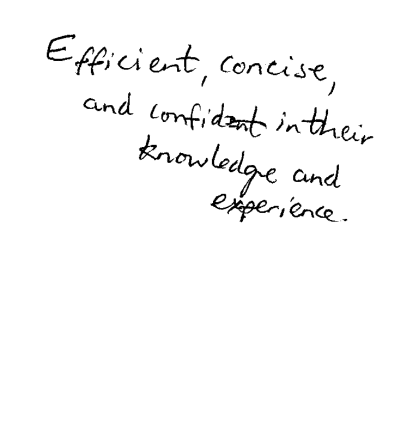 Efficient, concise,
and confident in their
knowledge and
experience.